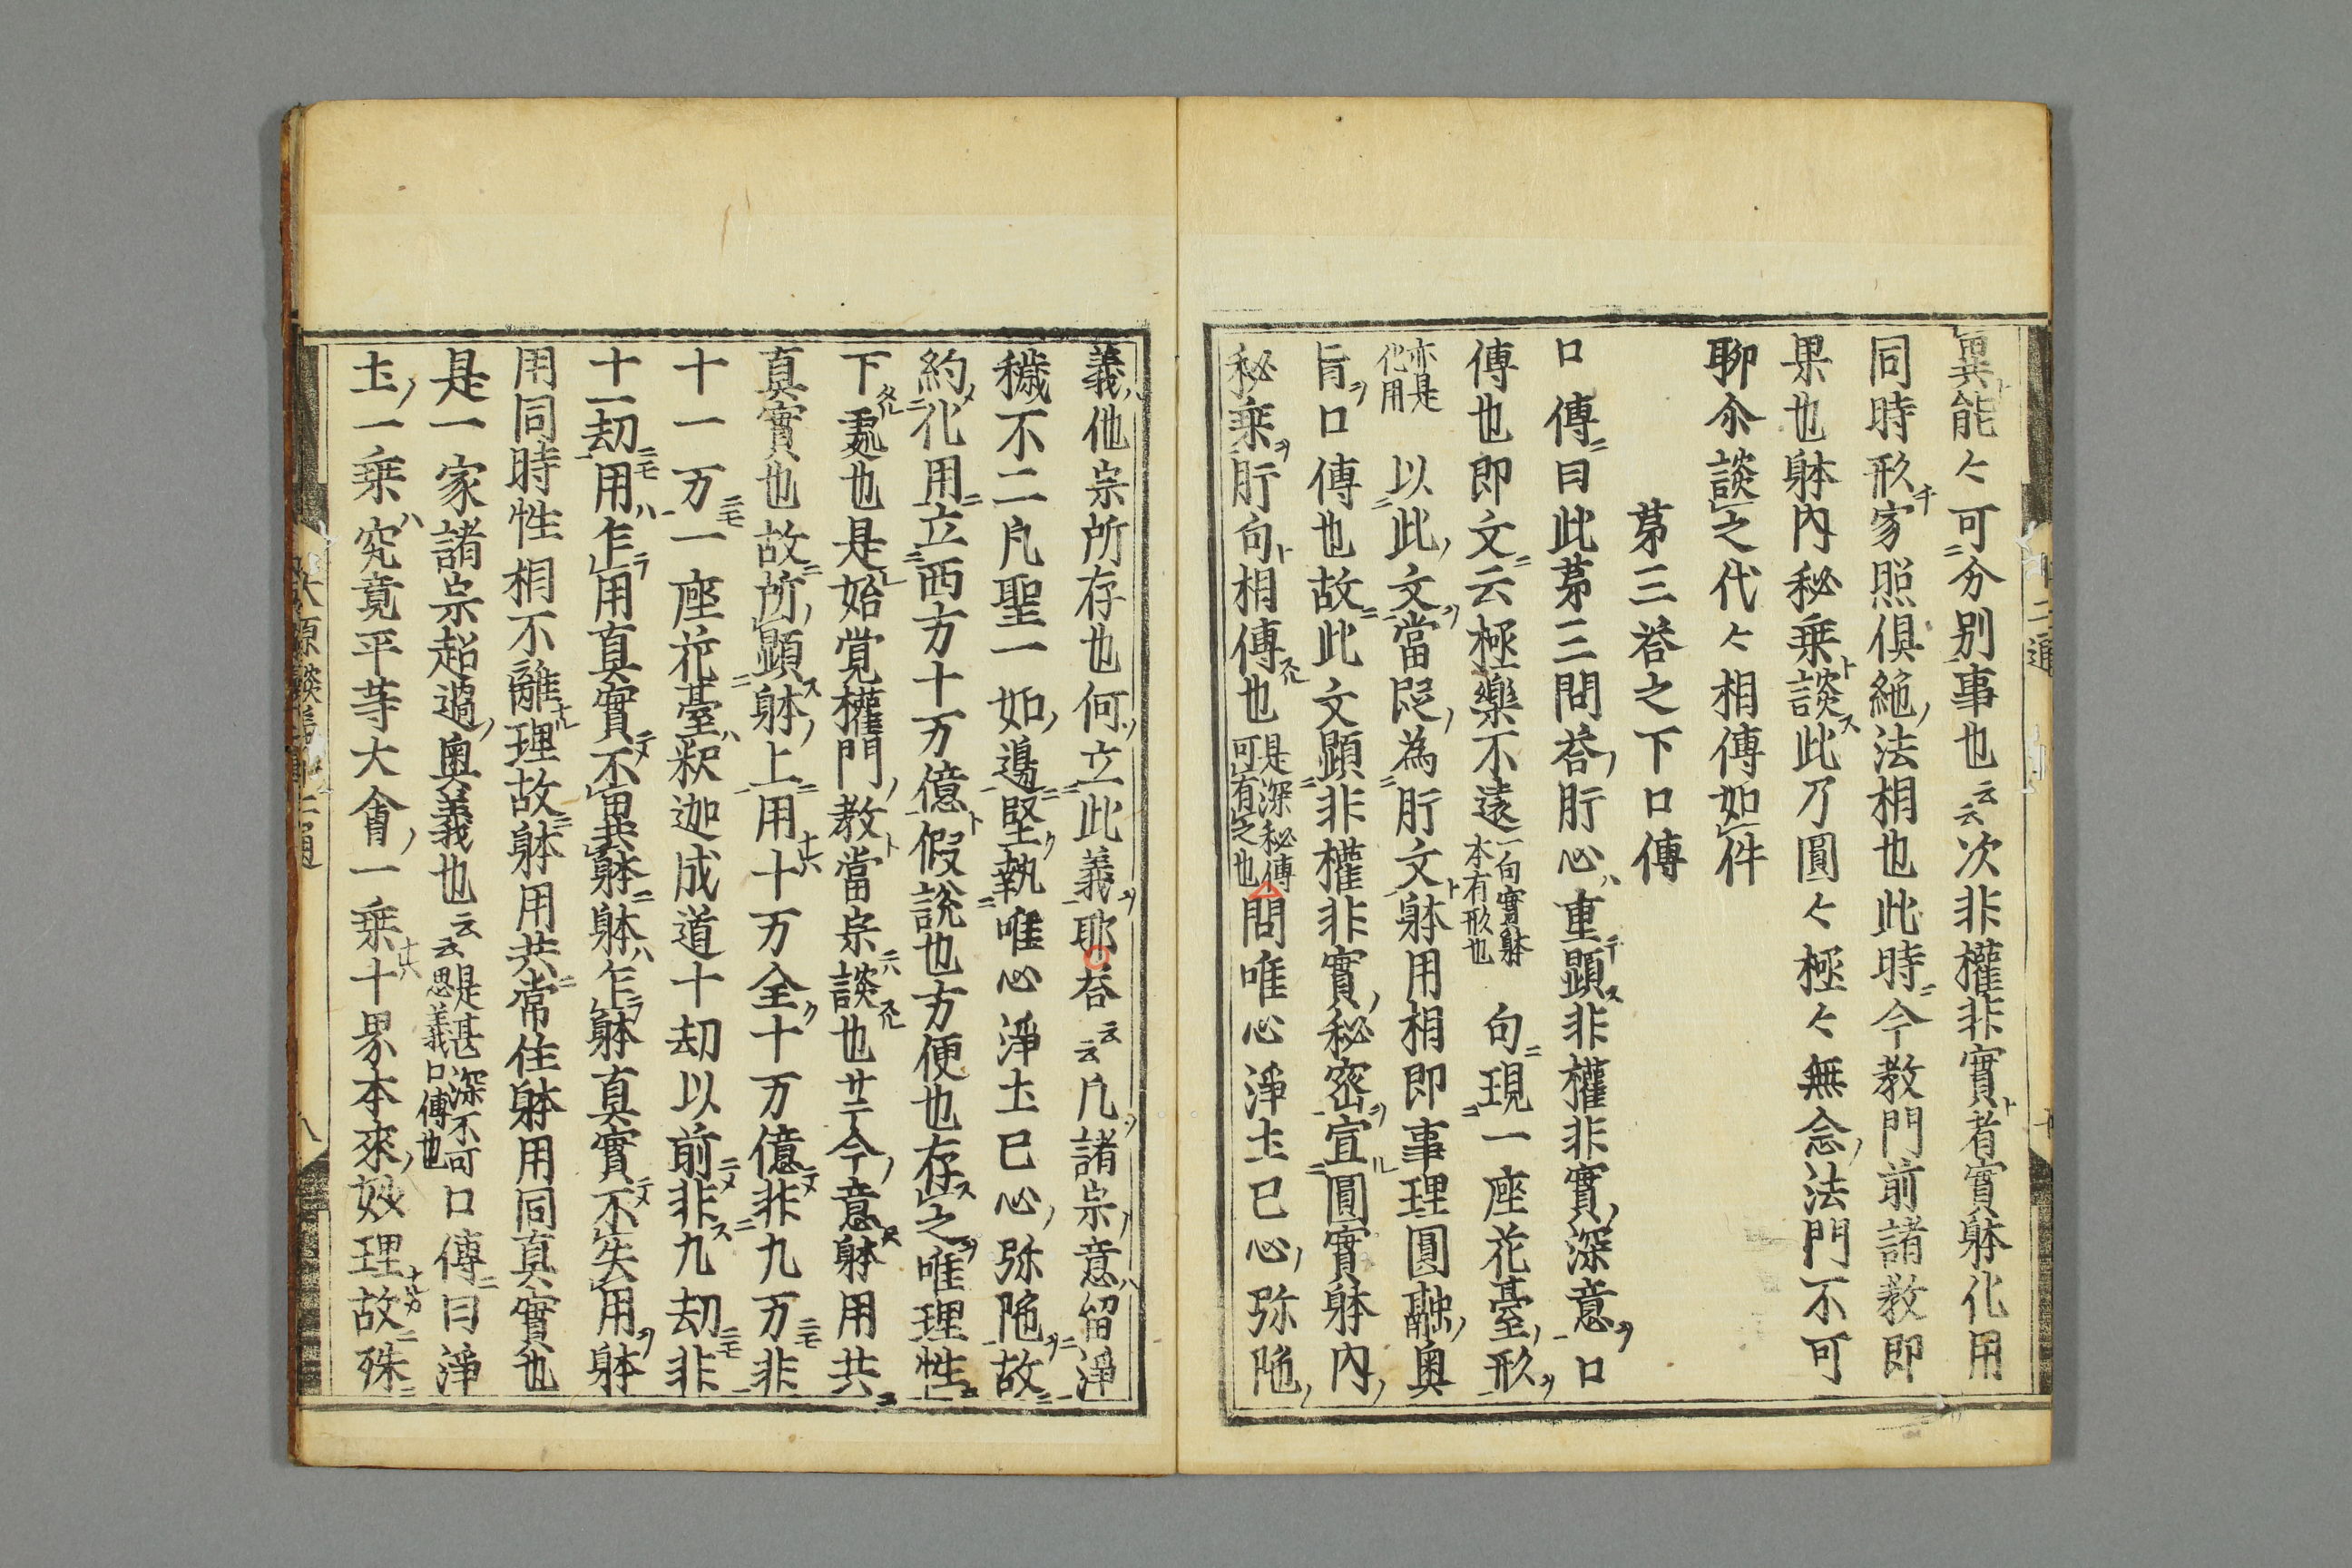 異能々可分別事也云云次非權非實者實躰化用
同時形家照俱絶法相也此時今教門前諸教即
果也躰內秘乗談此乃圓々極々無念法門不可
聊尒談之代々相傳如件
苐三荅之下口傳
口傳曰此苐三問荅肝心重顕非權非實深意口
傳也即文云極樂不遠一句實躰本有形也句現一座花臺形
亦是化用以此文當段為肝文躰用相即事理圓融奥
旨口傳也故此文顕非權非實秘密宣圓實躰內
秘乗肝句相傳也是深秘傳可有之也問唯心淨土已心弥陁
義他宗所存也何立此義耶荅云云凡諸宗意留淨
穢不二凡聖一如邊堅執唯心淨土已心弥陁故
約化用立西方十万億假說也方便也存之唯理性
下處也是始覚權門教當宗談也廿二今意躰用共
真實也故所顕躰上用十万全十万億非九万非
十一万一座花臺釈迦成道十劫以前非九劫非
十一劫用乍用真實不異躰躰乍躰真實不失用躰
用同時性相不離理故躰用共常住躰用同真實也
是一家諸宗超過奥義也云云是甚深不可思義口傳也口傳曰淨
土一乗究竟平等大會一乗十界本來妙理故殊